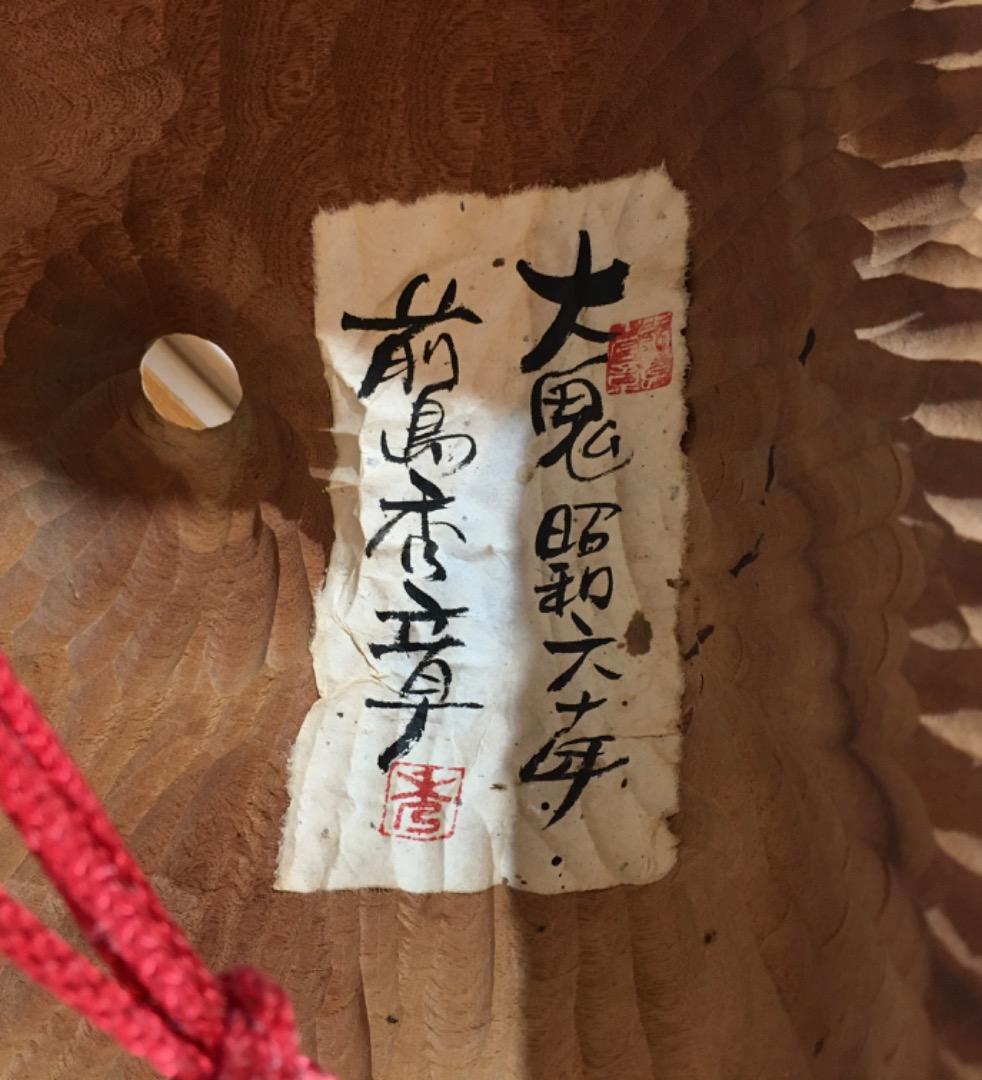 大鬼 昭和六十年
前島秀章
秀